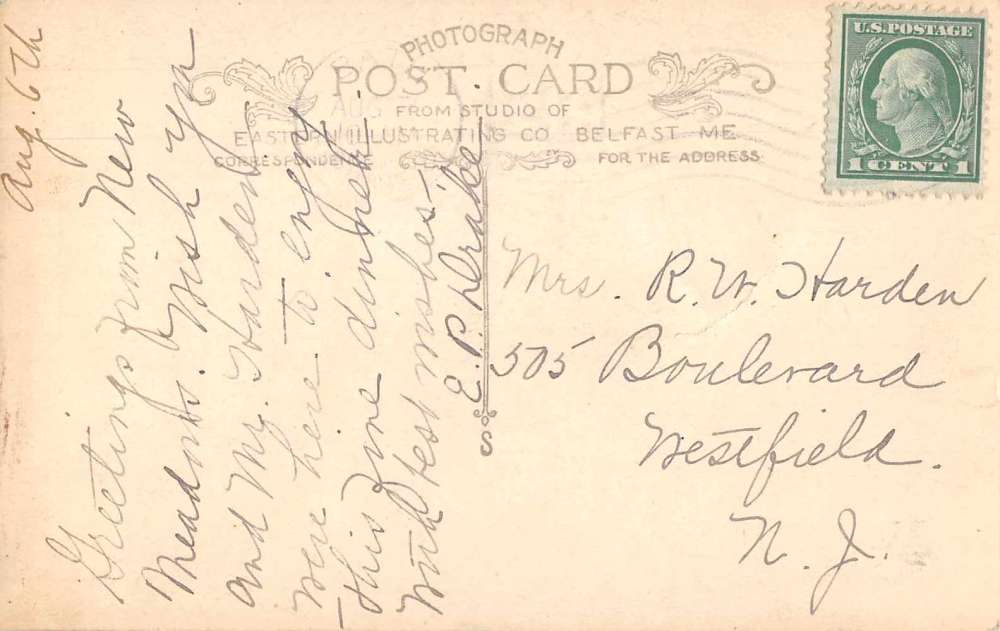 PHOTOGRAPH
POST CARD
FROM STUDIO OF
EASTERN ILLUSTRATING CO BELFAST ME.
CORRESPONDENCE
FOR THE ADDRESS
U.S.POSTAGE
1 CENT 1
Aug. 6th
Greetings from New
Meadows. Wish you
and Mr. Harden
were here to enjoy
this fine dinner.
With best wishes-
E. P. Drake
Mrs. R. W. Harden
505 Boulevard
Westfield.
N. J.
S